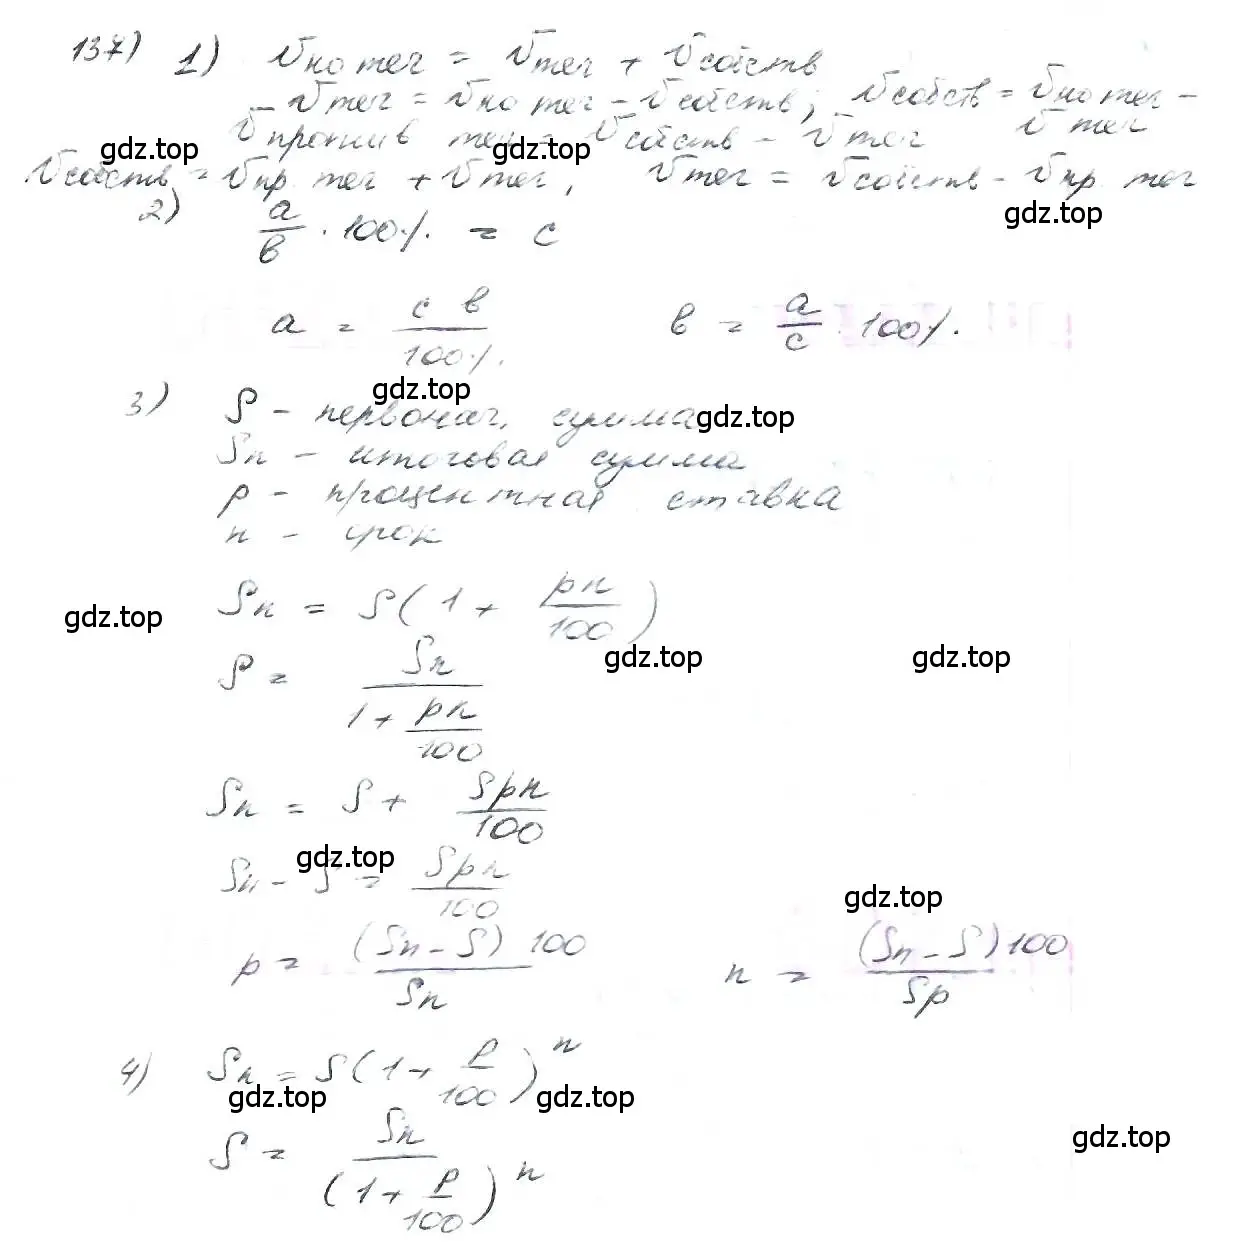 137) 1) Vпо теч = Vтеч + Vсобств
- Vтеч = Vпо теч - Vсобств; Vсобств = Vпо теч - Vтеч
Vпротив теч = Vсобств - Vтеч
gdz.top gdz.top
Vсобств = Vпр. теч + Vтеч, Vтеч = Vсобств - Vпр. теч
gdz.top
2) a/b · 100% = c
a = c b/100% b = a/c · 100%.
gdz.top
3) S - первонач. сумма gdz.top
Sn - итоговая сумма
p - процентная ставка
n - срок
gdz.top Sn = S(1 + pn/100)
gdz.top gdz.top
S = Sn/(1 + pn/100)
Sn = S + Spn/100
gdz.top
Sn - S = Spn/100
gdz.top
p = (Sn - S) 100/Sn n = (Sn - S) 100/Sp
4) Sn = S(1 + p/100)^n
gdz.top gdz.top
gdz.top
S = Sn/(1 + p/100)^n